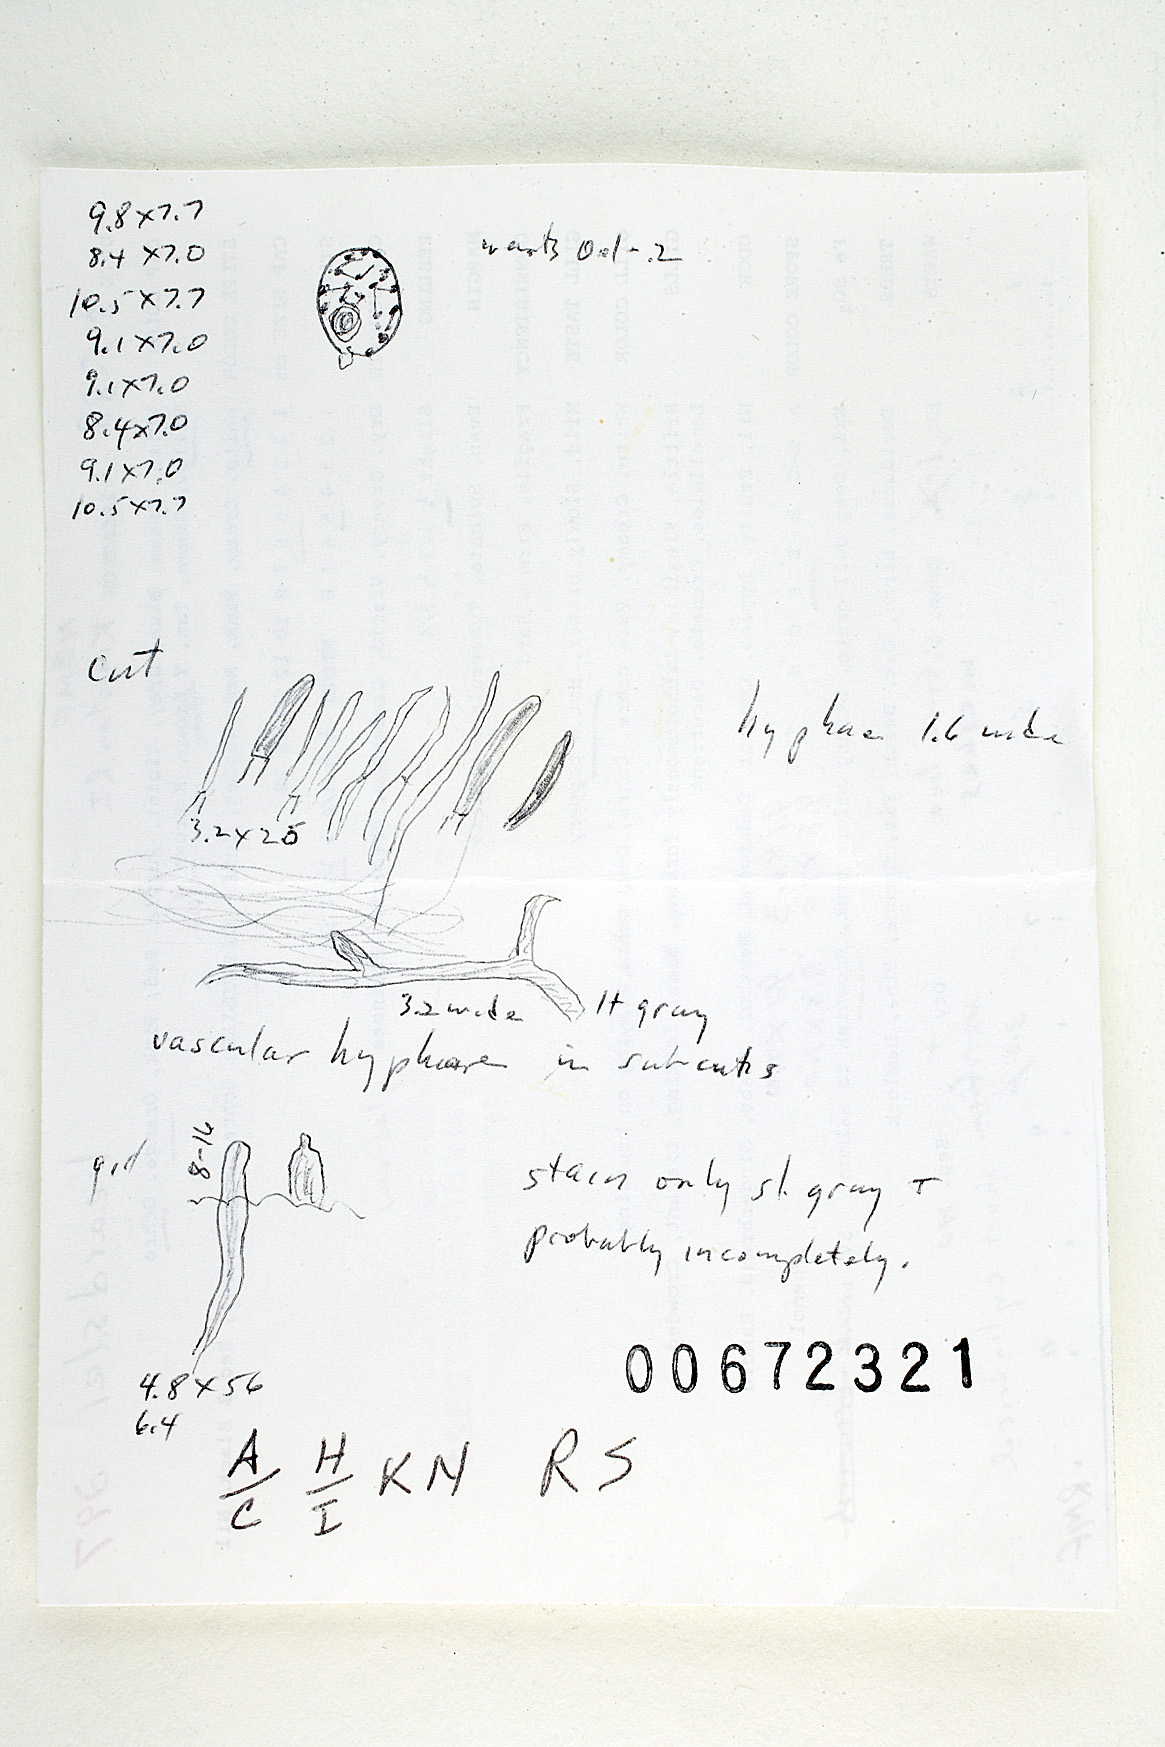 9.8 x 7.7
8.4 x 7.0
10.5 x 7.7
9.1 x 7.0
9.1 x 7.0
8.4 x 7.0
9.1 x 7.0
10.5 x 7.7
warts 0.1-.2
cut
hyphae 1.6 wide
3.2 x 25
3.2 wide lt gray
vascular hyphae in subcutis
8-16
stain only sl. gray +
probably incompletely.
4.8 x 56
6.4
00672321
A/C H/I K N R S